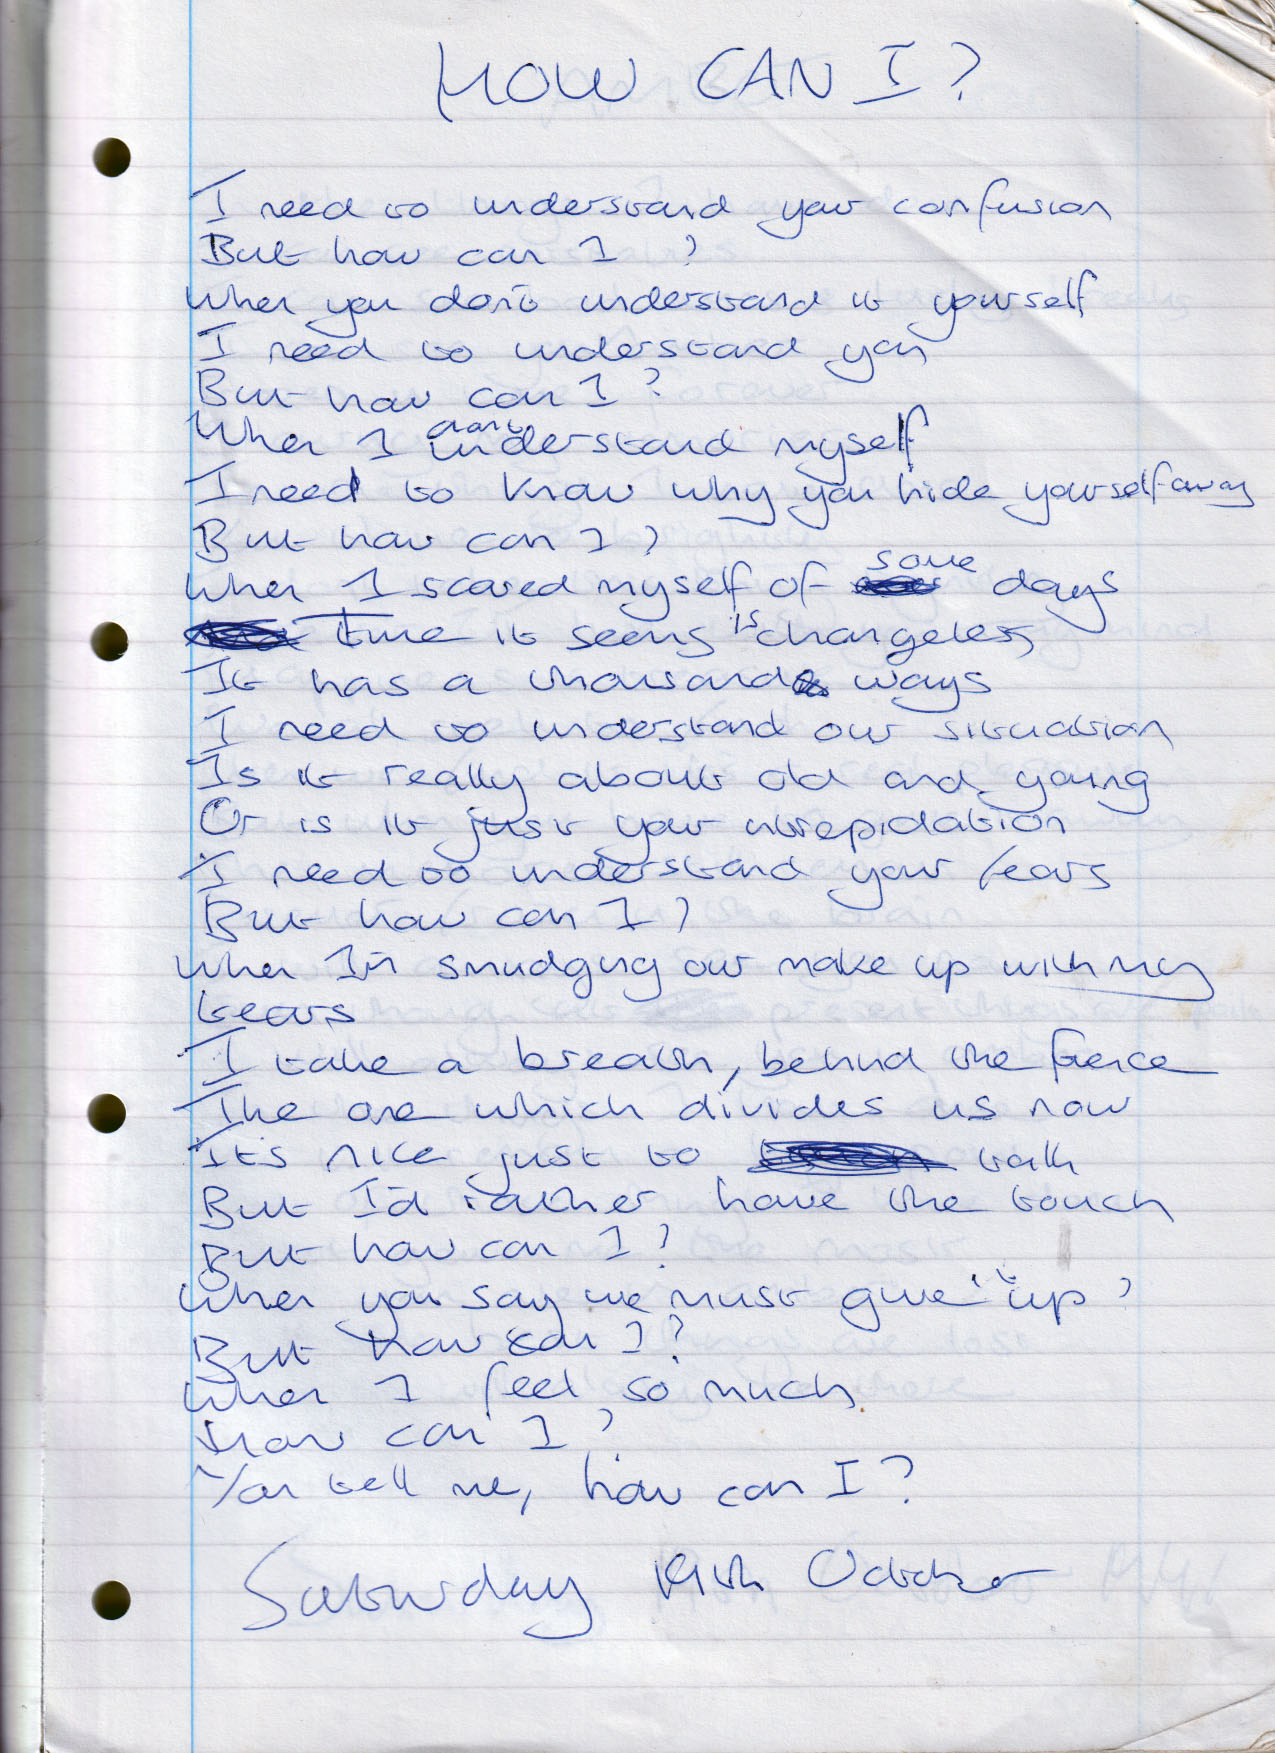 HOW CAN I?
I need to understand your confusion
But how can I?
When you don't understand it yourself
I need to understand you
But how can I?
When I don't understand myself
I need to know why you hide yourself away
But how can I?
When I scared myself of some days
time it seems is changeless
It has a thousand ways
I need to understand our situation
Is it really about old and young
Or is it just your intrepidation
I need to understand your fears
But how can I?
When I'm smudging our make up with my
tears
I take a breath, behind the fence
The one which divides us now
It's nice just to talk
But I'd rather have the touch
But how can I?
When you say we must give it up?
But how can I?
When I feel so much
How can I?
You tell me, how can I?
Saturday 19th October